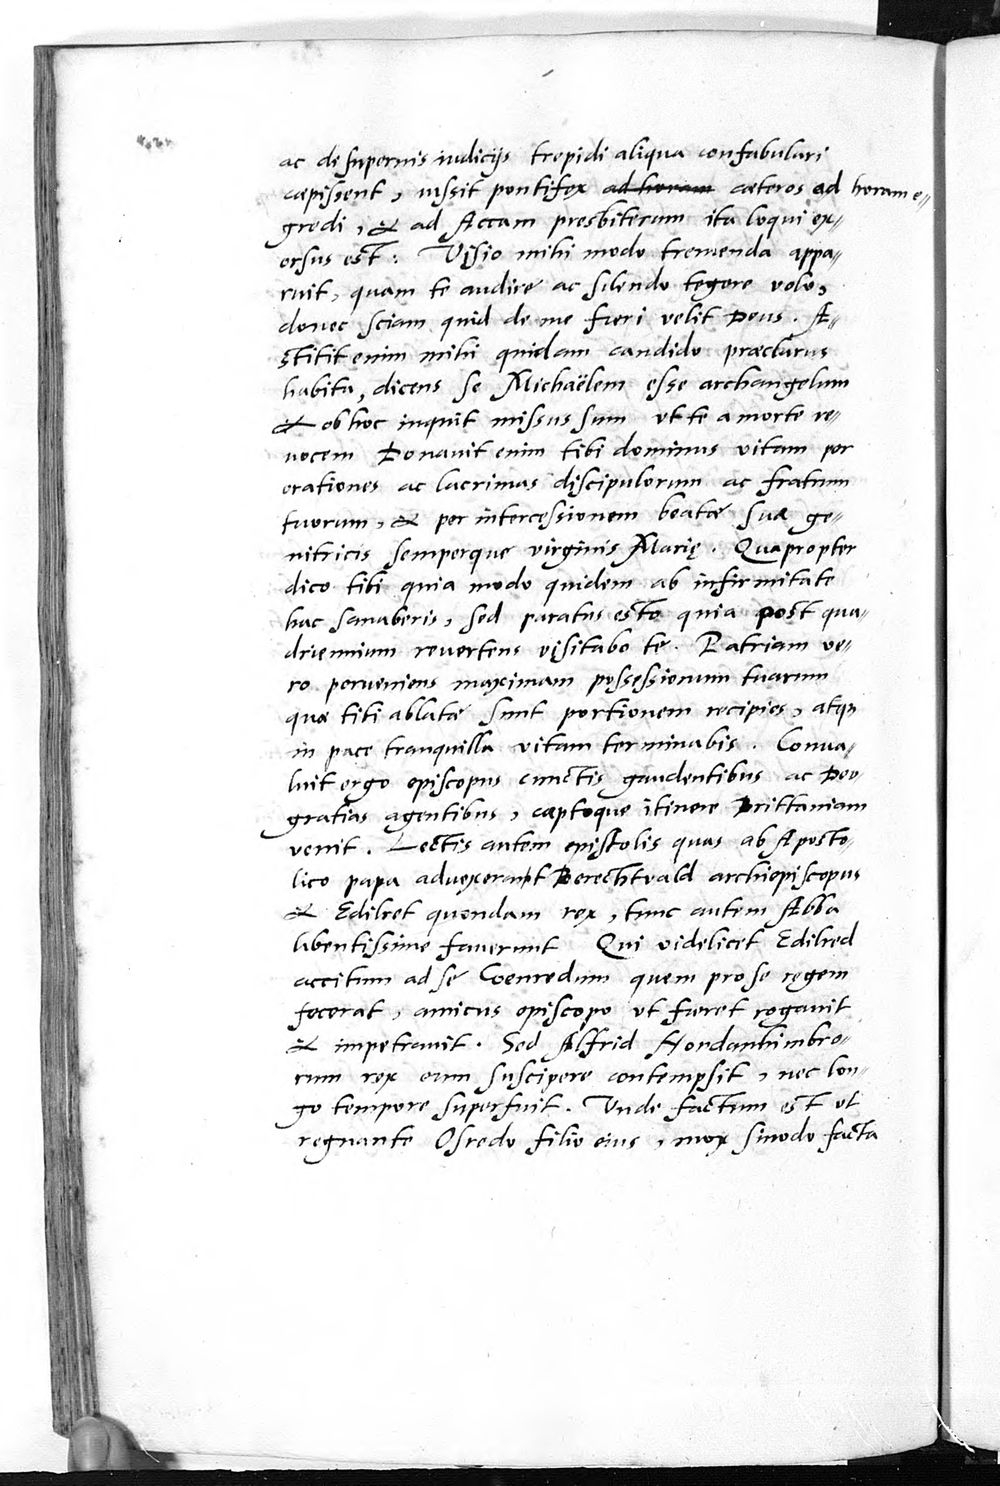 ac de supernis iudicijs trepidi aliqua confabulari
cæpissent, iussit pontifex ad horam cæteros ad horam e-
gredi, & ad Accam presbiterum ita loqui ex-
orsus est: Visio mihi modo tremenda appa-
ruit, quam te audire ac silendo tegere volo,
donec sciam quid de me fieri velit Deus. A-
stitit enim mihi quidam candido præclarus
habitu, dicens se Michaëlem esse archangelum
& ob hoc inquit missus sum ut te a morte re-
uocem Donauit enim tibi dominus vitam per
orationes ac lacrimas discipulorum ac fratrum
tuorum, & per intercessionem beatæ suæ ge-
nitricis semperque virginis Marię. Quapropter
dico tibi quia modo quidem ab infirmitate
hac sanaberis, sed paratus esto quia post qua-
driennium reuertens visitabo te. Patriam ve-
ro perueniens maximam possessionum tuarum
quæ tibi ablatæ sunt portionem recipies, atqꝫ
in pace tranquilla vitam terminabis. Conua-
luit ergo episcopus cunctis gaudentibus ac Deo
gratias agentibus, cæptoque itinere Brittaniam
venit. Lectis autem epistolis quas ab Aposto-
lico papa aduexerant Berechtvald archiepiscopus
& Edilret quondam rex, tunc autem Abba
libentissime fauerunt Qui videlicet Edilred
accitum ad se Coenredum quem pro se regem
fecerat, amicus episcopo ut fieret rogauit
& impetrauit. Sed Alfrid Nordanhimbro-
rum rex eum suscipere contempsit, nec lon-
go tempore superfuit. Unde factum est ut
regnante Osredo filio eius, mox sinodo facta